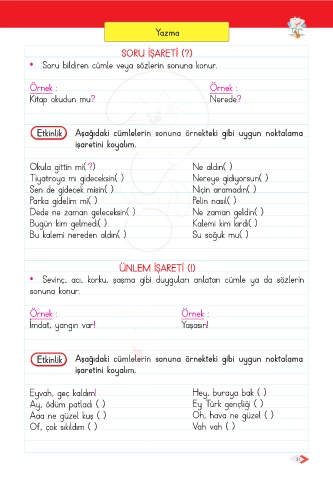 Yazma
SORU İŞARETİ (?)
• Soru bildiren cümle veya sözlerin sonuna konur.
Örnek :
Kitap okudun mu?
Örnek :
Nerede?
Etkinlik
Aşağıdaki cümlelerin sonuna örnekteki gibi uygun noktalama
işaretini koyalım.
Okula gittin mi(?)
Tiyatroya mı gideceksin( )
Sen de gidecek misin( )
Parka gidelim mi( )
Dede ne zaman geleceksin( )
Bugün kim gelmedi( )
Bu kalemi nereden aldın( )
Ne aldın( )
Nereye gidiyorsun( )
Niçin aramadın( )
Pelin nasıl( )
Ne zaman geldin( )
Kalemi kim kırdı( )
Su soğuk mu( )
ÜNLEM İŞARETİ (!)
• Sevinç, acı, korku, şaşma gibi duyguları anlatan cümle ya da sözlerin
sonuna konur.
Örnek :
İmdat, yangın var!
Örnek :
Yaşasın!
Etkinlik
Aşağıdaki cümlelerin sonuna örnekteki gibi uygun noktalama
işaretini koyalım.
Eyvah, geç kaldım!
Ay, ödüm patladı ( )
Aaa ne güzel kuş ( )
Of, çok sıkıldım ( )
Hey, buraya bak ( )
Ey Türk gençliği ( )
Oh, hava ne güzel ( )
Vah vah ( )